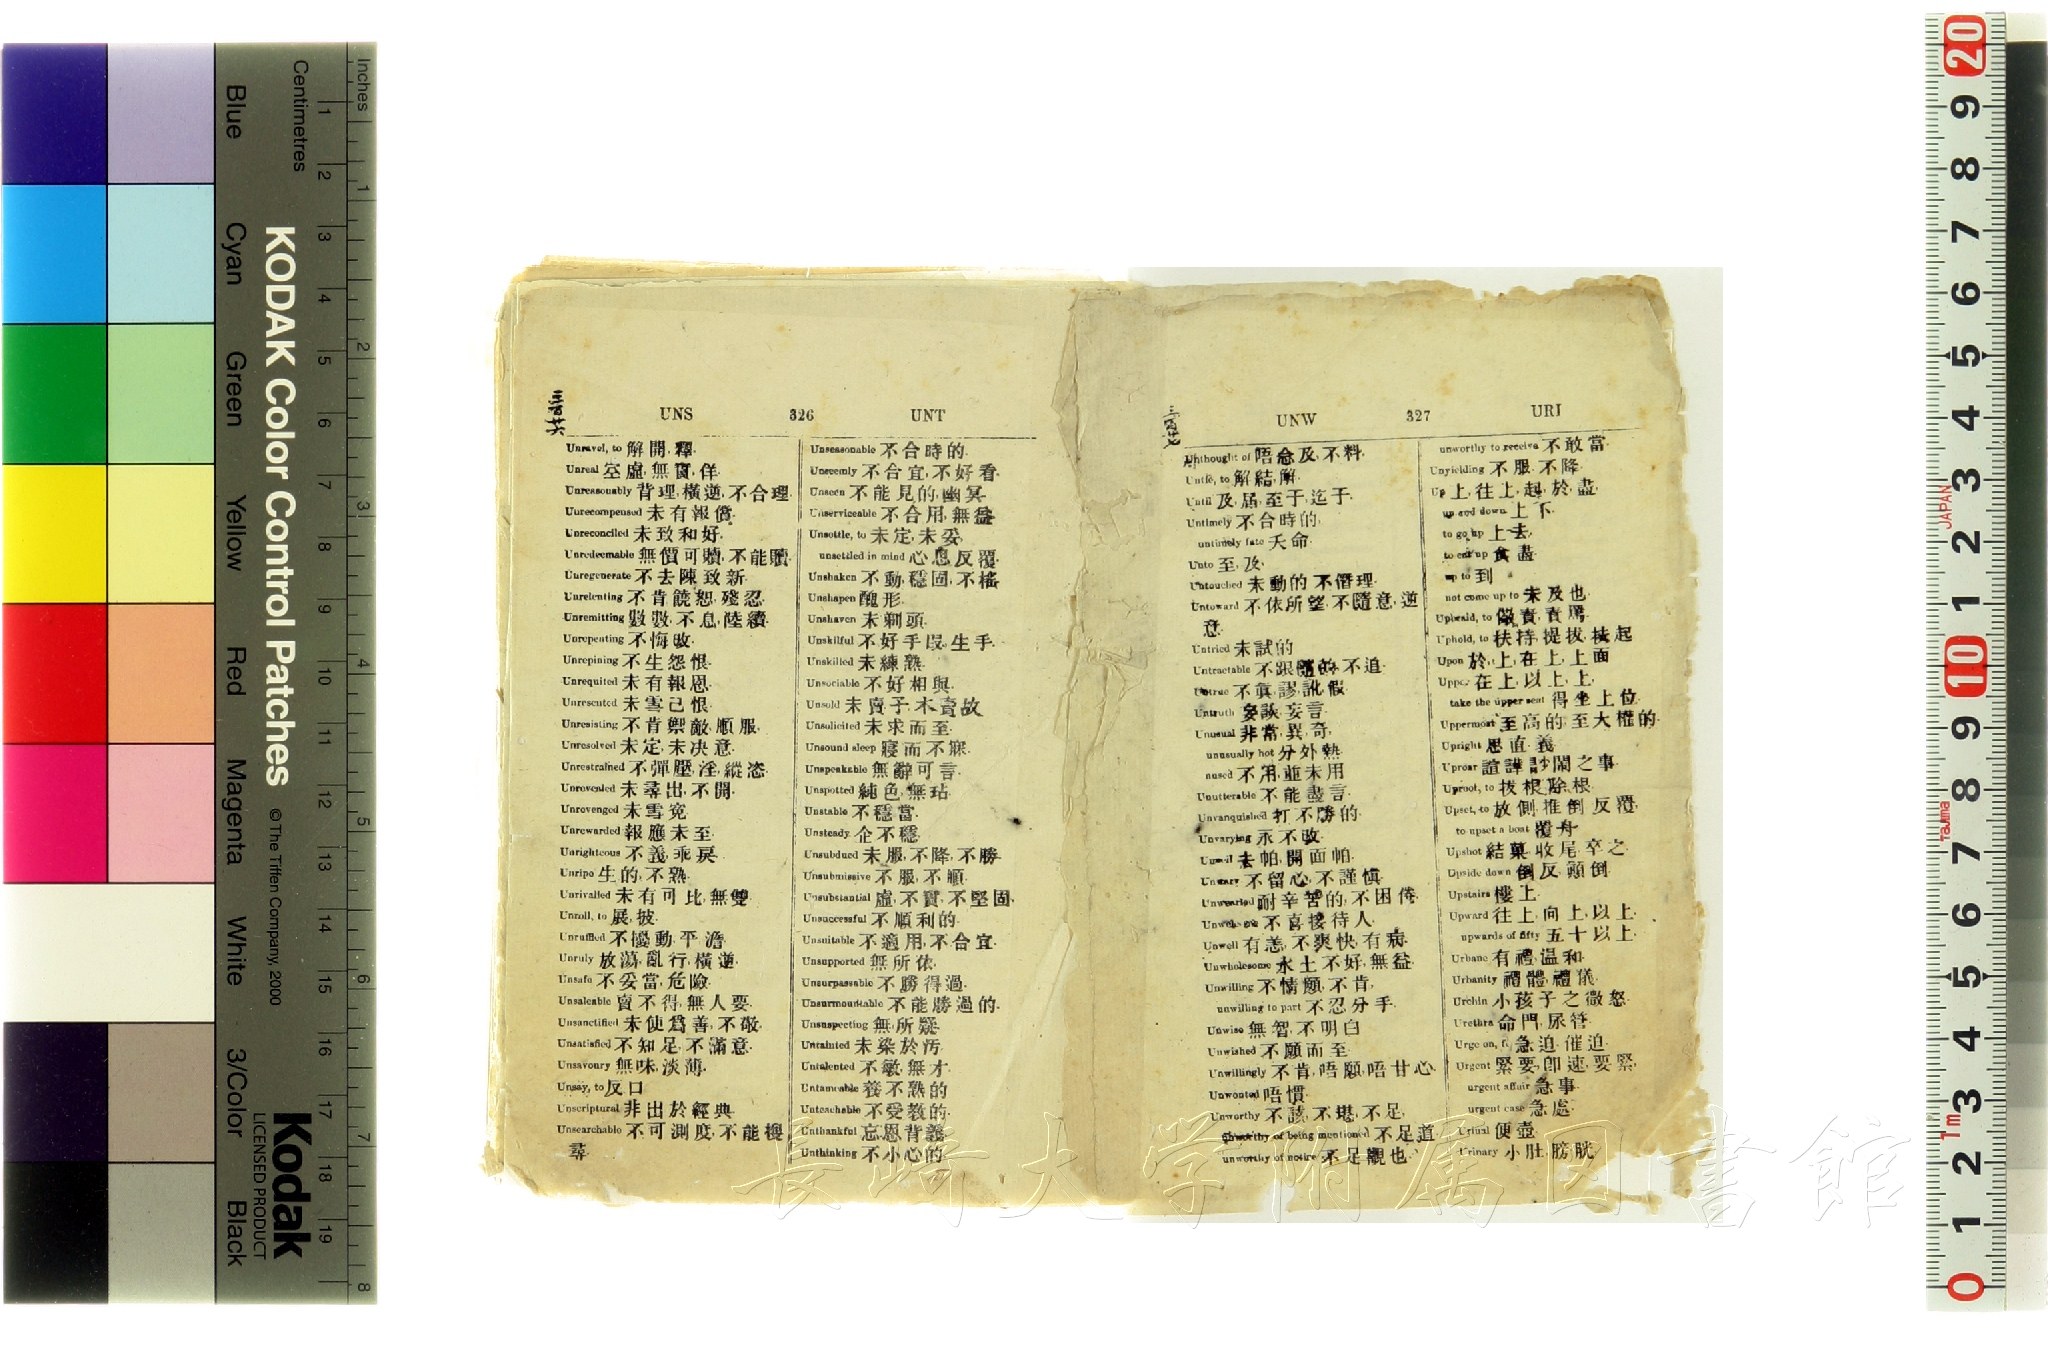 UNS 326 UNT
Unravel, to 解開, 釋.
Unreal 空虛, 無實, 佯.
Unreasonably 背理, 橫逆, 不合理.
Unrecompensed 未有報償.
Unreconciled 未致和好.
Unredeemable 無價可贖, 不能贖.
Unregenerate 不去陳致新.
Unrelenting 不肯饒恕, 殘忍.
Unremitting 數數, 不息, 陸續.
Unrepenting 不悔改.
Unrepining 不生怨恨.
Unrequited 未有報恩.
Unrescuted 未雪己恨.
Unresisting 不肯禦敵, 順服.
Unresolved 未定, 未决意.
Unrestrained 不彈壓, 淫, 縱恣.
Unrevealed 未尋出, 不開.
Unrevenged 未雪寃.
Unrewarded 報應未至.
Unrighteous 不義, 乖戾.
Unripe 生的, 不熟.
Unrivalled 未有可比, 無雙.
Unroll, to 展, 披.
Unruffled 不擾動, 平澹.
Unruly 放蕩, 亂行, 橫逆.
Unsafe 不妥當, 危險.
Unsaleable 賣不得, 無人要.
Unsanctified 未使爲善, 不敬.
Unsatisfied 不知足, 不滿意.
Unsavoury 無味, 淡薄.
Unsay, to 反口
Unscriptural 非出於經典.
Unsearchable 不可測度, 不能搜
尋.
Unseasonable 不合時的.
Unseemly 不合宜, 不好看.
Unseen 不能見的, 幽冥.
Unserviceable 不合用, 無益.
Unsettle, to 未定, 未妥.
unsettled in mind 心思反覆.
Unshaken 不動, 穩固, 不搖
Unshapen 醜形.
Unshaven 未剃頭.
Unskilful 不好手段, 生手.
Unskilled 未練熟.
Unsociable 不好相與.
Unsold 未賣子, 未賣故
Unsolicited 未求而至.
Unsound sleep 寢而不寐.
Unspeakable 無辭可言.
Unspotted 純色, 無玷.
Unstable 不穩當.
Unsteady 企不穩.
Unsubdued 未服, 不降, 不勝.
Unsubmissive 不服, 不順.
Unsubstantial 虛, 不實, 不堅固.
Unsuccessful 不順利的.
Unsuitable 不適用, 不合宜.
Unsupported 無所依.
Unsurpassable 不勝得過.
Unsurmountable 不能勝過的.
Unsuspecting 無所疑.
Untainted 未染於汚.
Untalented 不敏, 無才.
Untameable 養不熟的
Unteachable 不受教的.
Unthankful 忘恩背義.
Unthinking 不小心的.
UNW 327 URI
Unthought of 唔念及, 不料.
Untie, to 解結, 解.
Until 及, 屆, 至于, 迄于.
Untimely 不合時的.
untimely fate 夭命.
Unto 至, 及.
Untouched 未動的 不僭理.
Untoward 不依所望, 不隨意, 逆
意.
Untried 未試的
Untractable 不跟隨的, 不追.
Untrue 不眞, 謬, 訛, 假.
Untruth 妄談, 妄言.
Unusual 非常, 異, 奇.
unusually hot 分外熱
nused 不用, 並未用
Unutterable 不能盡言.
Unvanquished 打不勝的.
Unvarying 永不改.
Unveil 去帕, 開面帕.
Unwary 不留心, 不謹愼.
Unwearied 耐辛苦的, 不困倦.
不喜接待人.
Unwell 有恙, 不爽快, 有病.
Unwholesome 水土不好, 無益.
Unwilling 不情願, 不肯.
unwilling to part 不忍分手.
Unwise 無智, 不明白
Unwished 不願而至.
Unwillingly 不肯, 唔願, 唔甘心.
Unwonted 唔慣.
Unworthy 不該, 不堪, 不足.
unworthy of being mentioned 不足道
unworthy of notice 不足觀也.
unworthy to receive 不敢當.
Unyielding 不服, 不降.
Up 上, 往上, 起, 於, 盡.
up and down 上下.
to go up 上去.
to eat up 食盡.
up to 到
not come up to 未及也.
Upbraid, to 責, 責罵.
Uphold, to 扶持, 提拔, 扶起
Upon 於, 上, 在上, 上面
Upper 在上, 以上, 上.
take the upper seat 得坐上位.
Uppermost 至高的, 至大權的.
Upright 直, 義.
Uproar 諠譁, 鬧之事.
Uproot, to 拔根, 除根.
Upset, to 放側, 推倒, 反覆.
to upset a boat 覆舟
Upshot 結菓, 收尾, 卒之.
Upside down 倒反, 頭倒.
Upstairs 樓上.
Upward 往上, 向上, 以上.
upwards of fifty 五十以上.
Urbane 有禮, 温和.
Urbanity 禮體, 禮儀.
Urchin 小孩子之微怒.
Urethra 命門, 尿管.
Urge on, to 急迫, 催迫.
Urgent 緊要, 即速, 要緊.
urgent affair 急事.
urgent case 急處.
Urinal 便壺.
Urinary 小肚, 膀胱.
長崎大学附属図書館
Inches
Centimetres
KODAK Color Control Patches © The Tiffen Company, 2000
Kodak
LICENSED PRODUCT
Blue Cyan Green Yellow Red Magenta White 3/Color Black
1 2 3 4 5 6 7 8 9 10 11 12 13 14 15 16 17 18 19
1 2 3 4 5 6 7 8
20 9 8 7 6 5 4 3 2 1 10 9 8 7 6 5 4 3 2 1 0
JAPAN
Tajima
1m